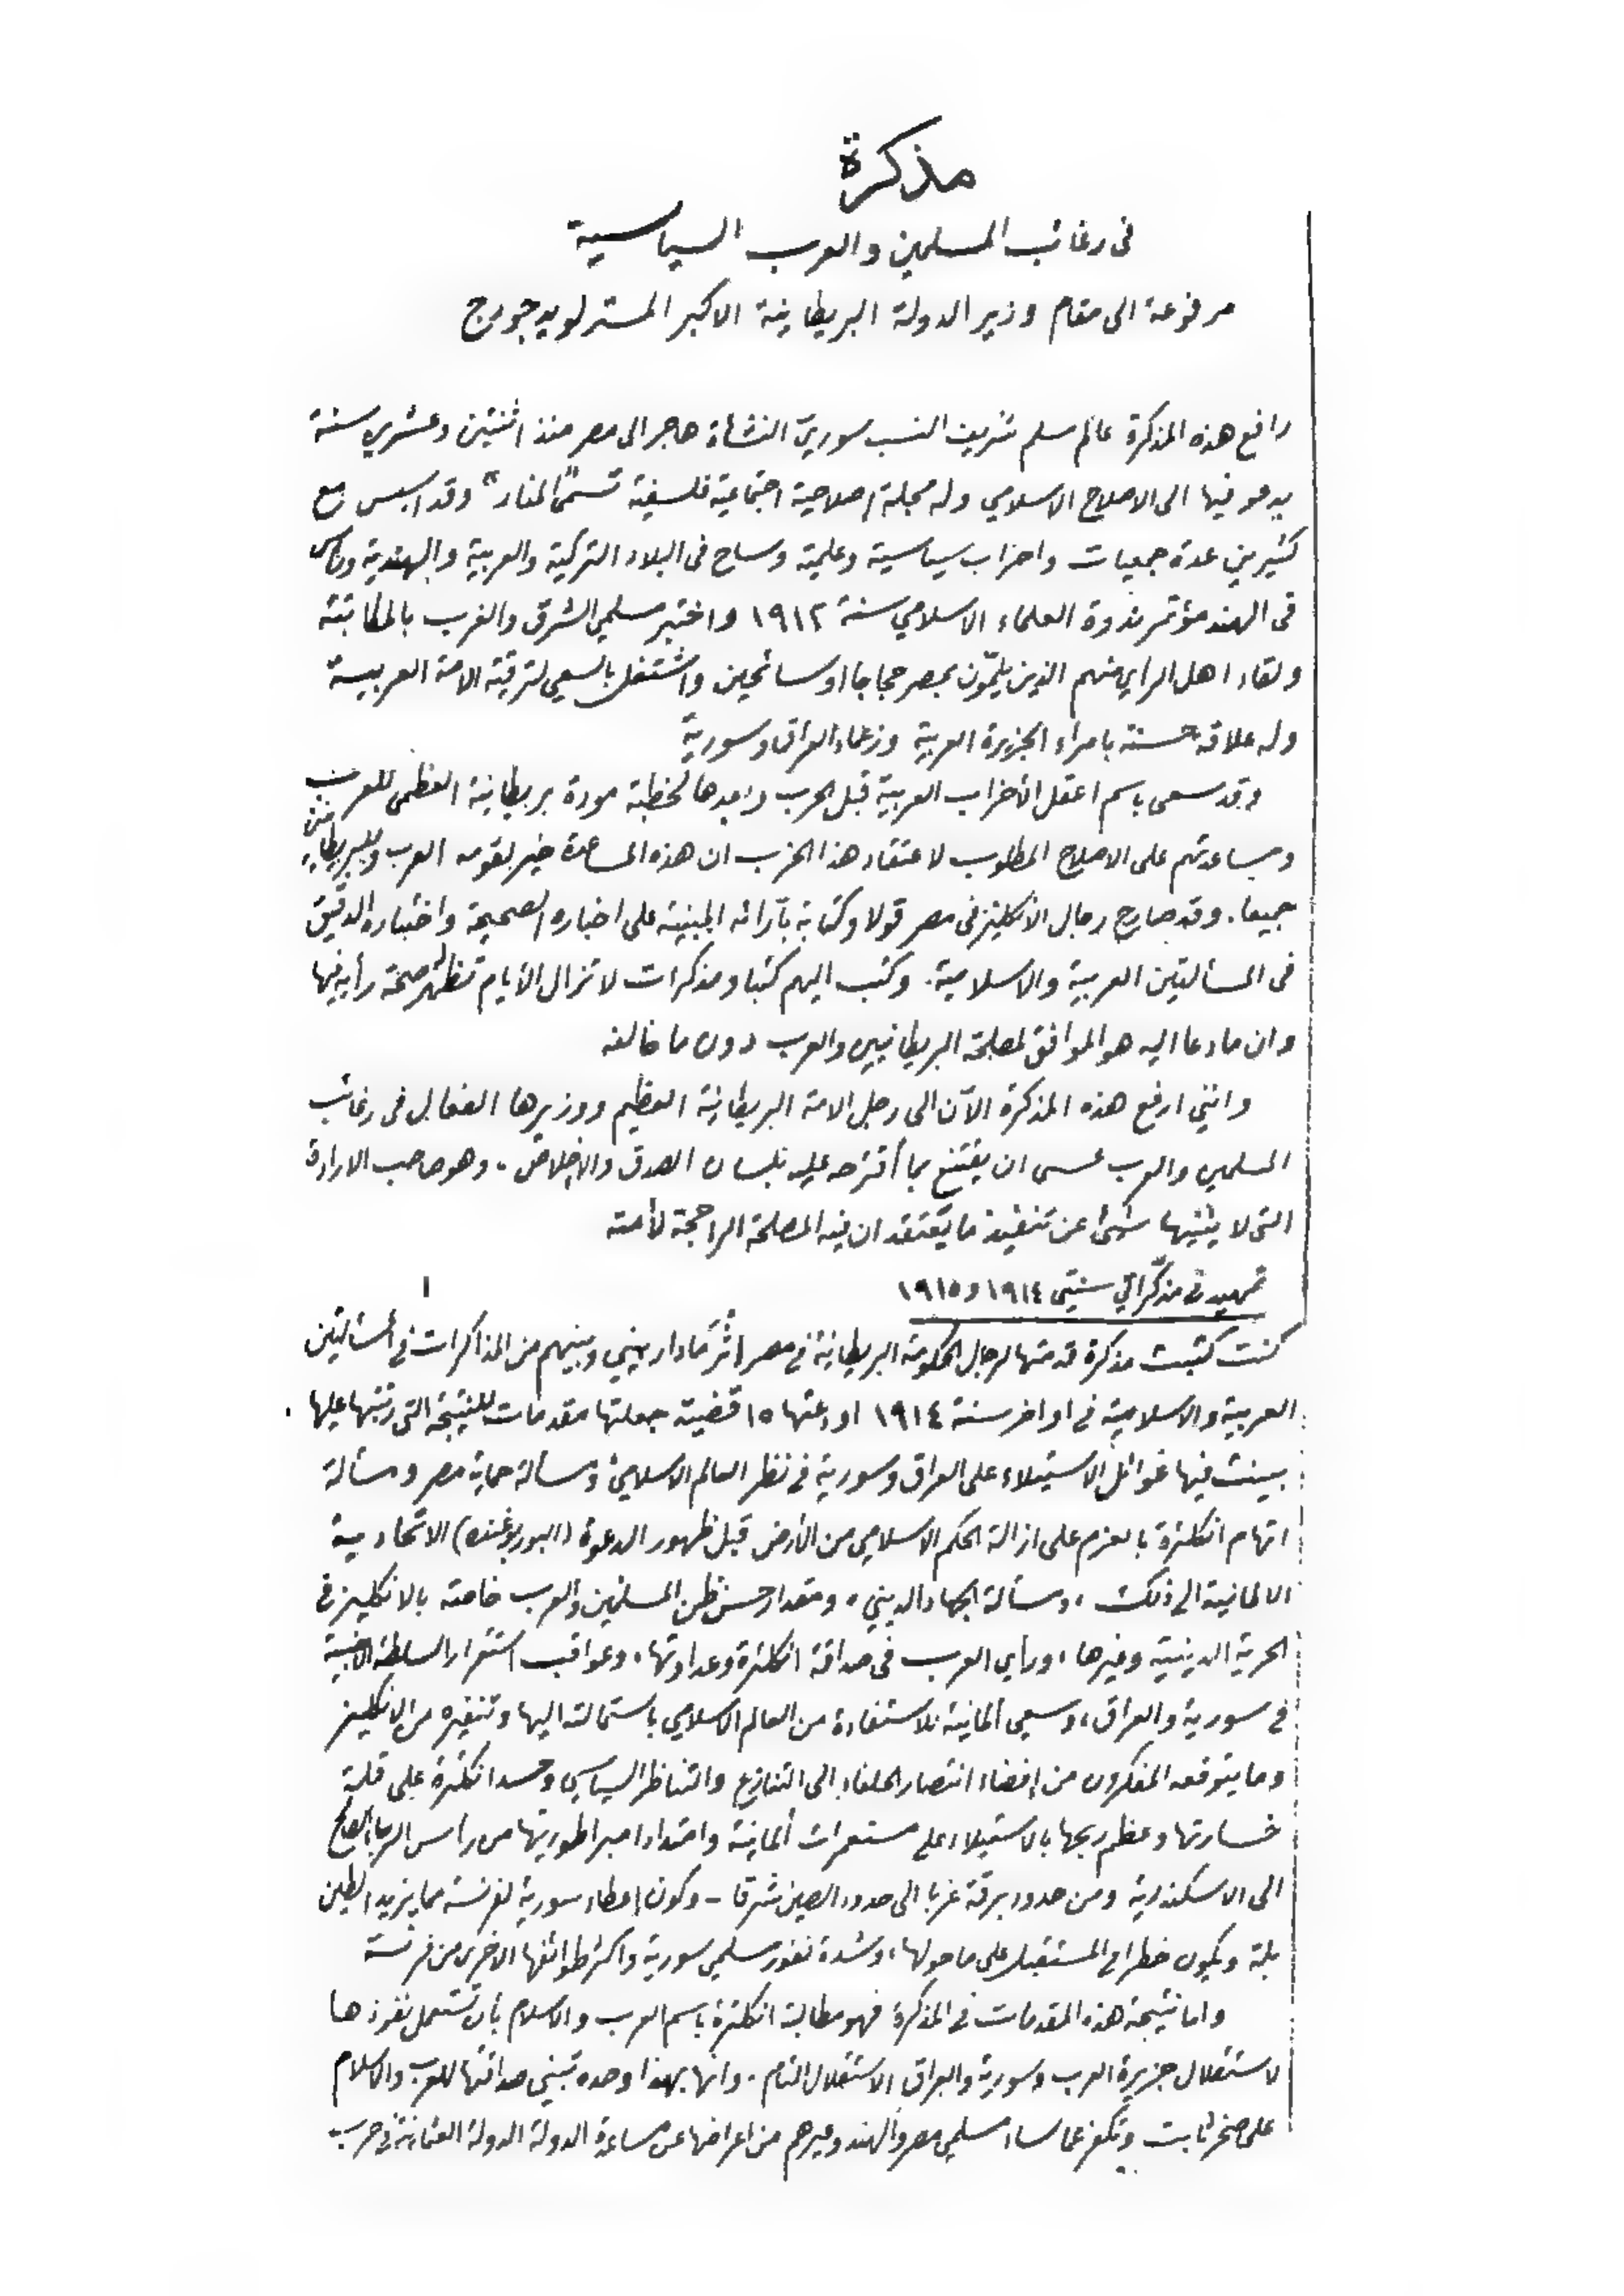 مذكرة
فى رغائب المسلمين والعرب السياسية
مرفوعة الى مقام وزير الدولة البريطانية الاكبر المستر لويد جورج
رافع هذه المذكرة عالم مسلم شريف النسب سوريّ النشأة هاجر الى مصر منذ اثنتين وعشرين سنة
يدعو فيها الى الاصلاح الاسلامي وله مجلة اصلاحية اجتماعية فلسفية تسمّى "المنار" وقد اسس مع
كثيرين عدة جمعيات واحزاب سياسية وعلمية وساح فى البلاد التركية والعربية والهندية ورأس
فى الهند مؤتمر ندوة العلماء الاسلامي سنة ١٩١٢ واختبر مسلمي الشرق والغرب بالمكاتبة
ولقاء اهل الراي منهم الذين يلمّون بمصر حجاجا او سائحين واشتغل بالسعي لترقية الامة العربية
وله علاقة حسنة بامراء الجزيرة العربية وزعماء العراق وسورية
وقد سعى باسم اعقل الأحزاب العربية قبل الحرب وبعدها لخطبة مودة بريطانية العظمى للعرب
ومساعدتهم على الاصلاح المطلوب لاعتقاد هذا الحزب ان هذه المساعدة خير لقومه العرب وللبريطانيين
جميعا. وقد صارح رجال الانكليز فى مصر قولا وكتابة بآرائه المبنية على اخباره الصحيحة واختباره الدقيق
فى المسألتين العربية والاسلامية. وكتب اليهم كتبا ومذكرات لا تزال الأيام تظهر صحة رأيه فيها
وان ما دعا اليه هو الموافق لمصلحة البريطانيين والعرب دون ما خالفه
وانني ارفع هذه المذكرة الآن الى رجل الامة البريطانية العظيم ووزيرها الفعال فى رغائب
المسلمين والعرب عسى ان يقتنع بما أقترحه عليه بلسان الصدق والاخلاص. وهو صاحب الارادة
التى لا يثنيها شئ عن تنفيذ ما يعتقد ان فيه المصلحة الراجحة لأمته
تمهيد فى مذكراتي سنتي ١٩١٤ و ١٩١٥
١
كنت كتبت مذكرة قدمتها لرجال الحكومة البريطانية في مصر اثر ما دار بيني وبينهم من المذاكرات في المسألتين
العربية والاسلامية في اواخر سنة ١٩١٤ اودعتها ١٥ قضية جعلتها مقدمات للنتيجة التى رتبتها عليها
بينت فيها غوائل الاستيلاء على العراق وسورية في نظر العالم الاسلامي ومسألة حماية مصر ومسألة
اتهام انكلترة بالعزم على ازالة الحكم الاسلامي من الأرض قبل ظهور الدعوة (البوربوغنده) الاتحادية
الالمانية الى ذلك، ومسألة الجهاد الديني، ومقدار حسن ظن المسلمين والعرب خاصة بالانكليز في
الحرية الدينية وغيرها، ورأي العرب فى صداقة انكلترة وعداوتها، وعواقب استقرار السلطة الاجنبية
في سورية والعراق، وسعي ألمانية للاستفادة من العالم الاسلامي باستمالته اليها وتنفيره من الانكليز
وما يتوقعه المفكرون من إفضاء انتصار الحلفاء الى التنازع والتناظر السياسي وحسد انكلترة على قلة
خسارتها وعظم ربحها بالاستيلاء على مستعمرات ألمانية وامتداد امبراطوريتها من راس الرجا الصالح
الى الاسكندرية ومن حدود برقة غربا الى حدود الصين شرقا - وكون إعطاء سورية لفرنسة مما يزيد الطين
بلة ويكون خطرا في المستقبل على ما حولها، وشدة نفور مسلمي سورية واكثر طوائفها الاخرى من فرنسة
واما نتيجة هذه المقدمات في المذكرة فهو مطالبة انكلترة باسم العرب والاسلام بأن تستعمل نفوذها
لاستقلال جزيرة العرب وسورية والعراق الاستقلال التام. وانها بهذا وحده تبني صداقتها للعرب والاسلام
على صخر ثابت وتكفر عما ساء مسلمي مصر والهند وغيرهم من اعراضها عن مساعدة الدولة الدولة العثمانية في حرب